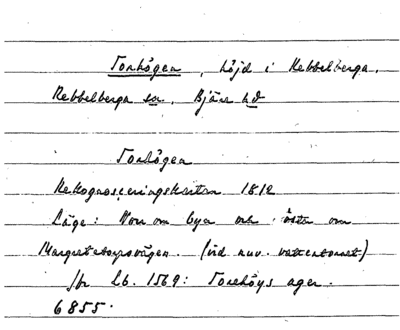 Torhögen, höjd i Rebbelberga,
Rebbelberga sn, Bjäre hd
Torhögen
Rekognosceringskartan 1812
Läge: Norr om byn och öster om
Margretetorpsvägen. (vid nuv. vattentornet)
Jbr Lb. 1569: Torehöys ager.
6855.